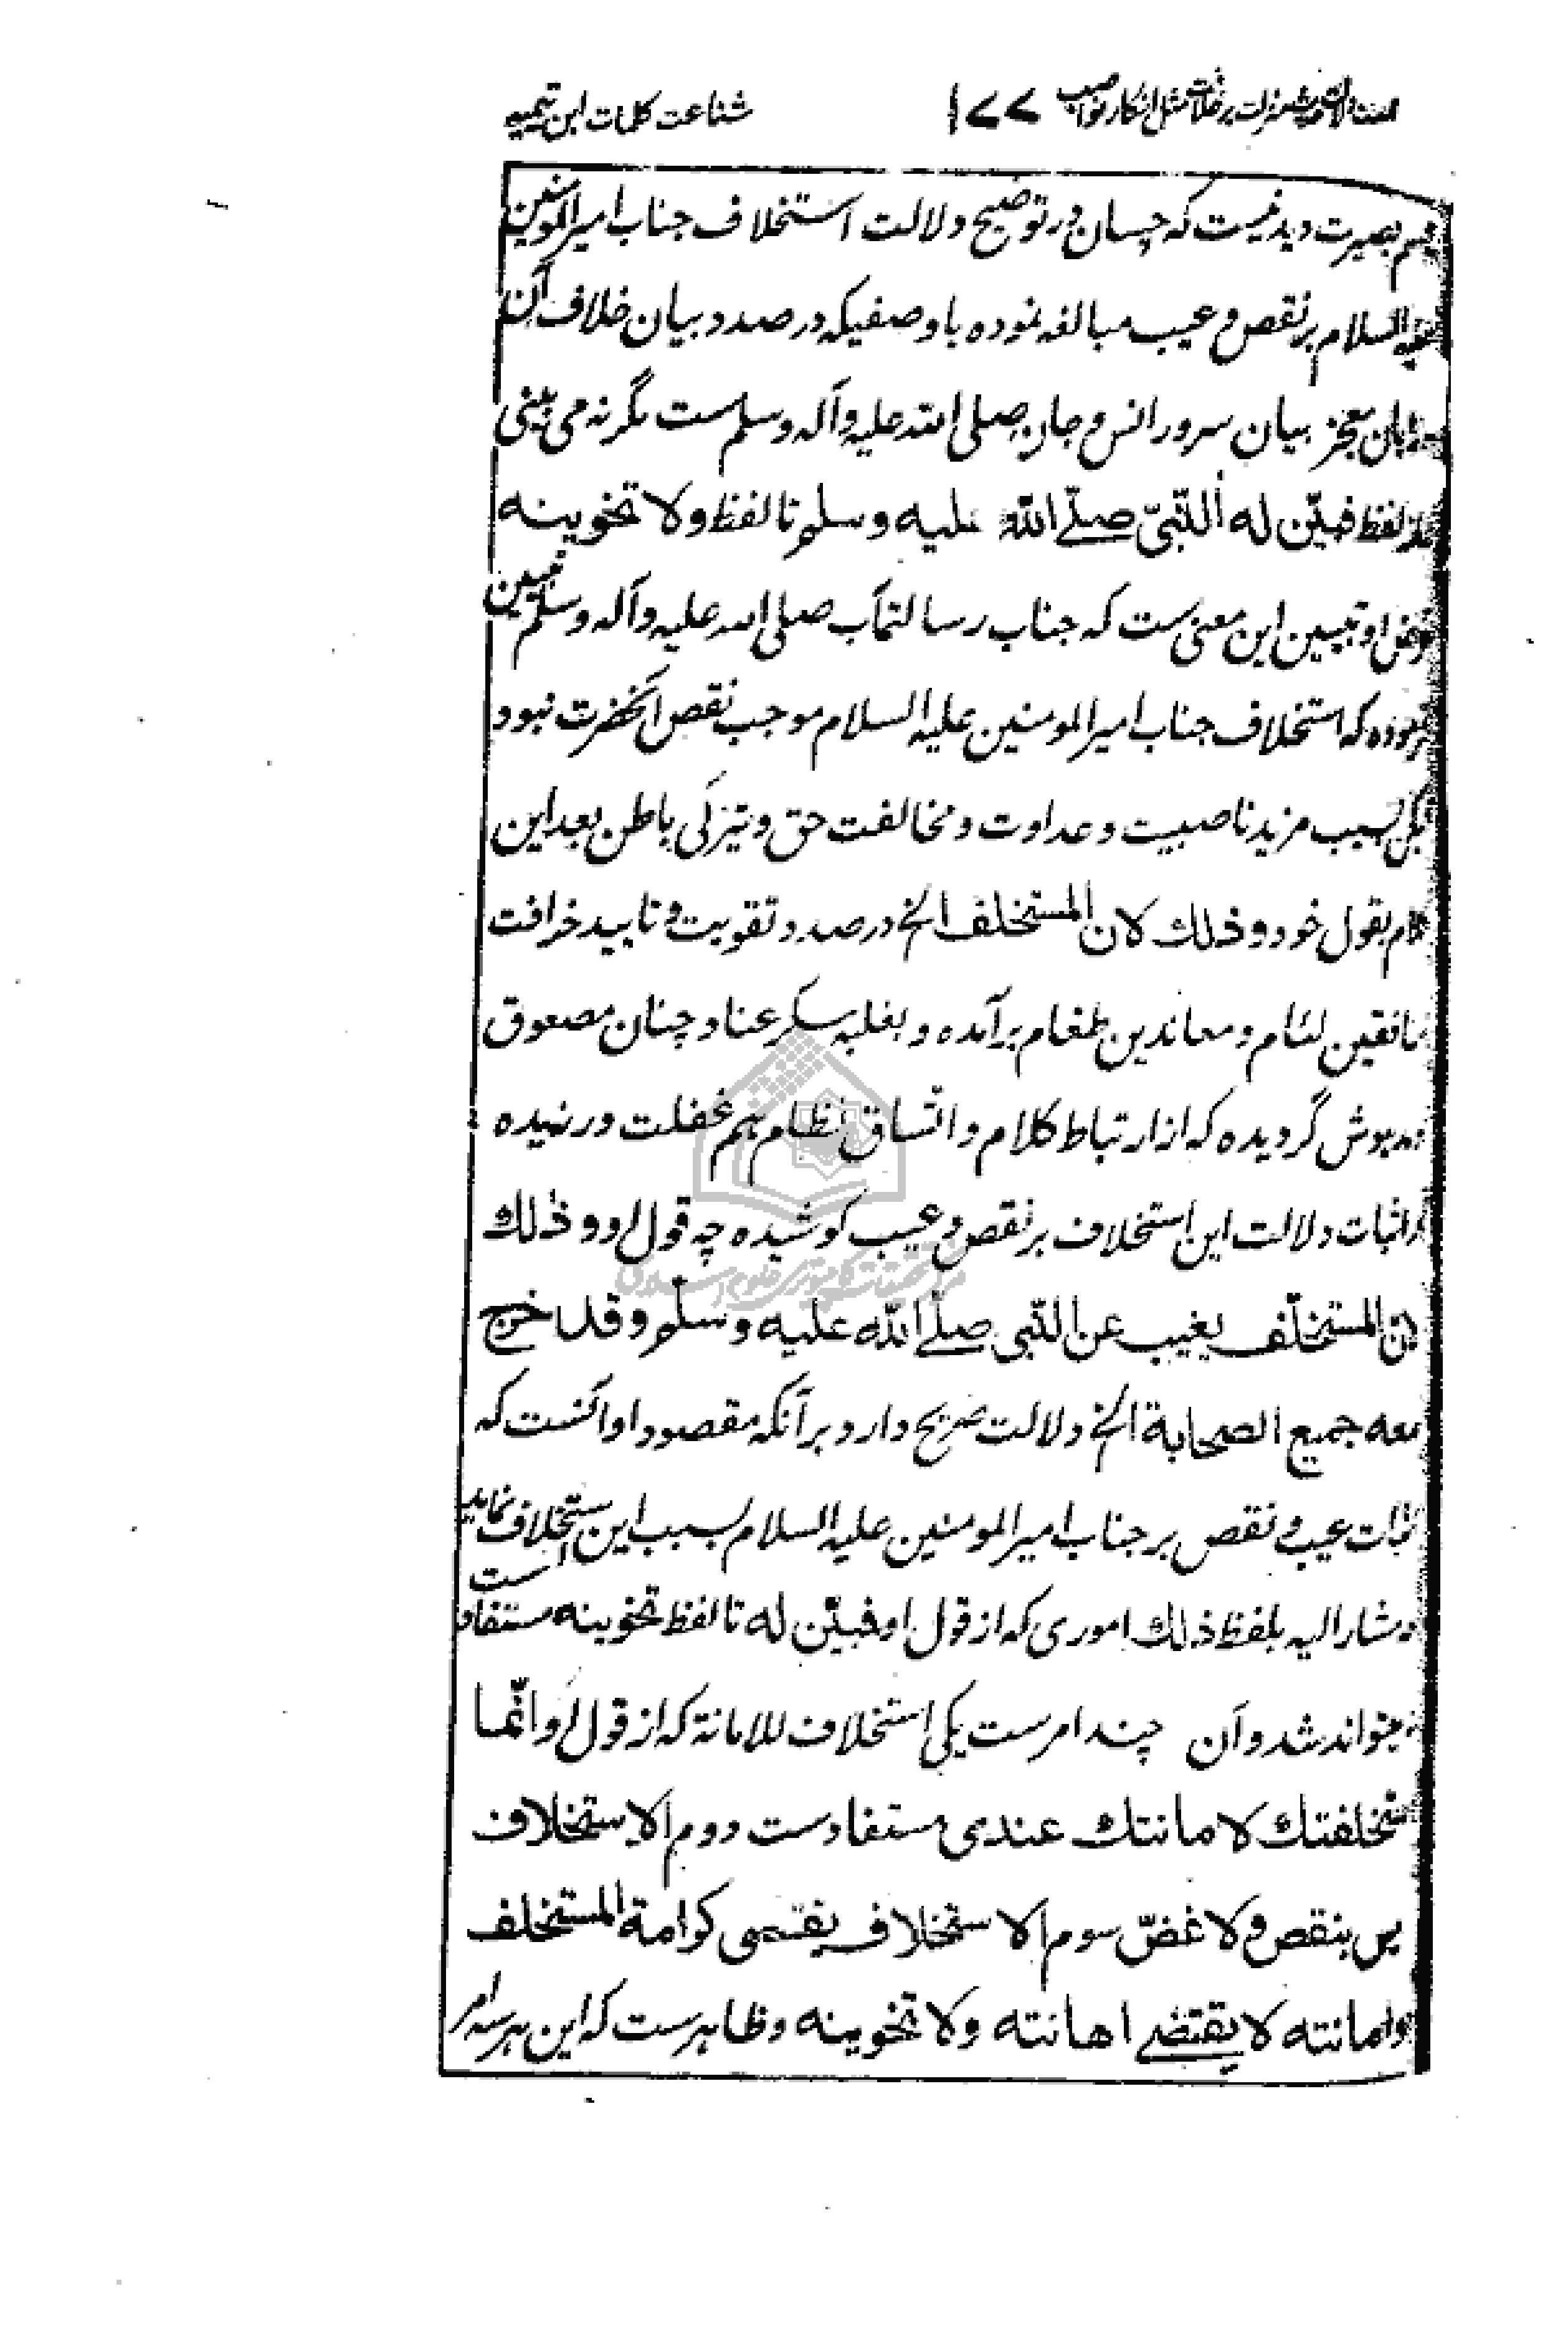 دلالت حدیث منزلت بر خلافت مثل انکار نواصب ۱۷۷ شناعت کلمات ابن تیمیه
بصیرت دیدنیست که چسان در توضیح دلالت استخلاف جناب امیرالمومنین
علیه السلام بر نقص و عیب مبالغه نموده باوصفیکه در صدد بیان خلاف آن
معجز بیان سرور انس و جان صلی الله علیه وآله وسلم ست مگر نه می بینی
لفظ فبیّن له النّبیّ صلّے اللّٰه علیه وسلم تا لفظ ولا تخوینه
او تبیین این معنی ست که جناب رسالتمآب صلی الله علیه وآله وسلم تبیین
فرموده که استخلاف جناب امیرالمومنین علیه السلام موجب نقص آنحضرت نبود
لیکن بسبب مزید ناصبیت و عداوت و مخالفت حق و تیرگی باطن بعد این
بقول خود وذلك لان المستخلف الخ در صدد تقویت و تایید خرافت
منافقین لئام و معاندین طغام برآمده و بغلبه سکر عناد چنان مصعوق
و مدهوش گردیده که از ارتباط کلام و اتساق نظام هم غفلت ورزیده
در اثبات دلالت این استخلاف بر نقص و عیب کوشیده چه قول او وذلك
لان المستخلّف یغیب عن النّبی صلّے اللّٰه علیه وسلم وقد خرج
معه جمیع الصحابة الخ دلالت صریح دارد بر آنکه مقصود او آنست که
اثبات عیب و نقص بر جناب امیرالمومنین علیه السلام بسبب این استخلاف نماید
و مشار الیه بلفظ ذلك اموری که از قول او فبیّن له تا لفظ تخوینه مستفاد است
نمیتواند شد و آن چند امرست یکی استخلاف للامانة که از قول او وانّما
استخلفتك لامانتك عندی مستفادست دوم الاستخلاف
لیس بنقص ولا غضّ سوم الاستخلاف یقتضی کرامة المستخلف
وامانته لا یقتضے اهانته ولا تخوینه و ظاهرست که این هر سه امر